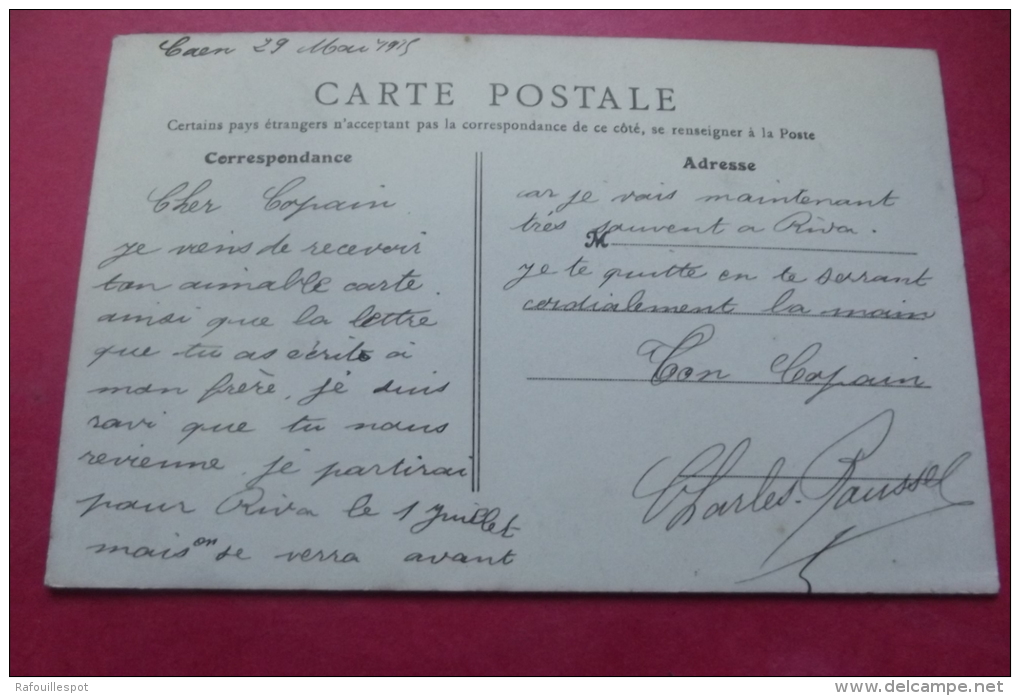 Caen 29 Mai 1915
CARTE POSTALE
Certains pays étrangers n'acceptant pas la correspondance de ce côté, se renseigner à la Poste
Correspondance
Cher Copain
je viens de recevoir
ton aimable carte.
ainsi que la lettre
que tu as écrite à
mon frère, je suis
ravi que tu nous
revienne. je partirai
pour Riva le 1 Juillet
mais on se verra avant
Adresse
car je vais maintenant
très souvent a Riva.
M
je te quitte en te serrant
cordialement la main
Ton Copain
Charles
Rafouillespot
www.delcampe.net